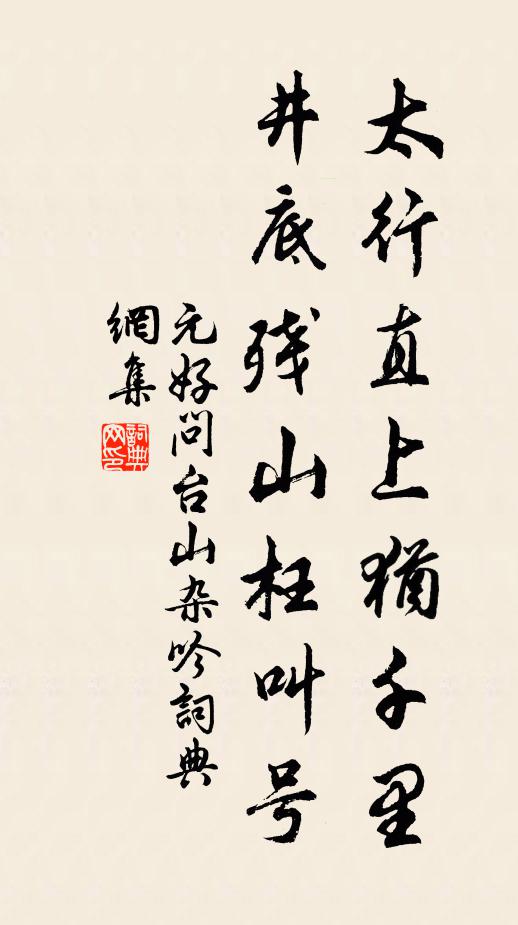 太行直上猶千里
井底残山枉叫号
元好问台山杂吟詞典
網集
詞典
网印